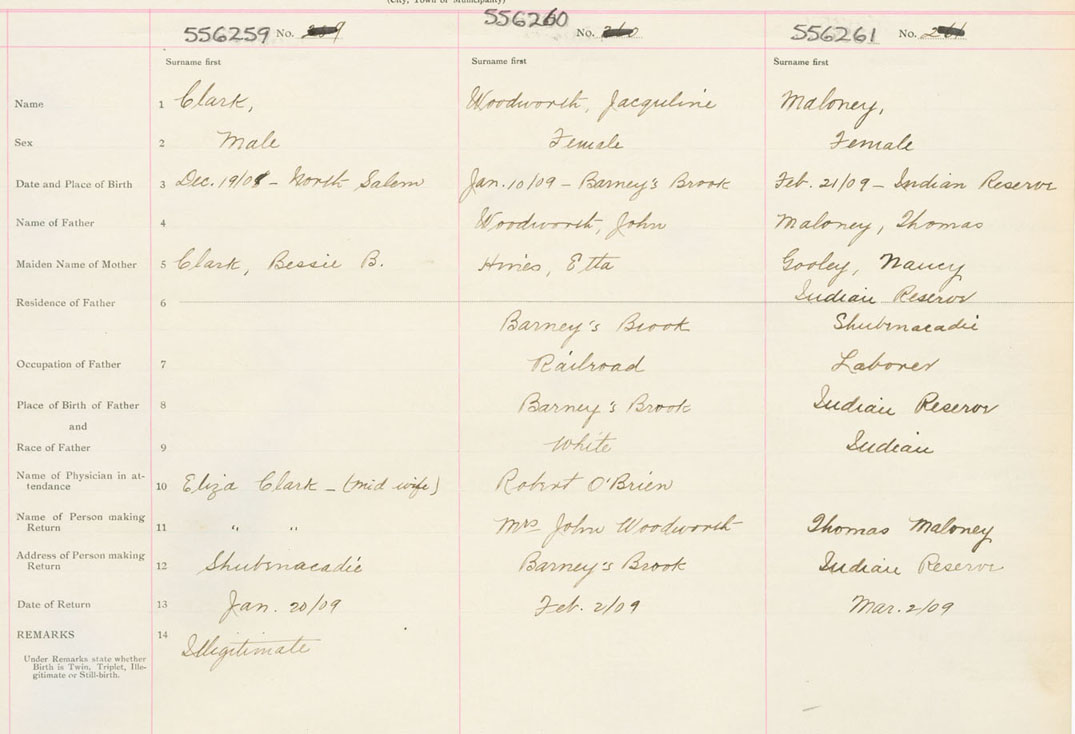 (City, Town or Municipality)
556259 No. 556260 No. 556261 No.
Surname first Surname first Surname first
Name 1 Clark, Woodworth, Jacquline Maloney,
Sex 2 Male Female Female
Date and Place of Birth 3 Dec. 19/08 - North Salem Jan. 10/09 - Barney's Brook Feb. 21/09 - Indian Reserve
Name of Father 4 Woodworth, John Maloney, Thomas
Maiden Name of Mother 5 Clark, Bessie B. Hines, Etta Gooley, Nancy
Residence of Father 6 Indian Reserve
Barney's Brook Shubenacadie
Occupation of Father 7 Railroad Laborer
Place of Birth of Father 8 Barney's Brook Indian Reserve
and
Race of Father 9 White Indian
Name of Physician in at-
tendance 10 Eliza Clark - (mid wife) Robert O'Brien
Name of Person making
Return 11 " " Mrs John Woodworth Thomas Maloney
Address of Person making
Return 12 Shubenacadie Barney's Brook Indian Reserve
Date of Return 13 Jan. 20/09 Feb. 2/09 Mar. 2/09
REMARKS 14 Illigitimate
Under Remarks state whether
Birth is Twin, Triplet, Ille-
gitimate or Still-birth.